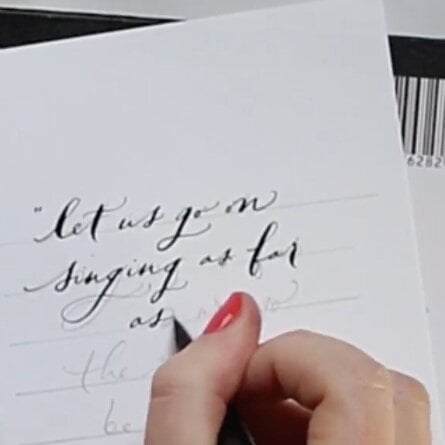 "let us go on
singing as far
as
the
be
6282